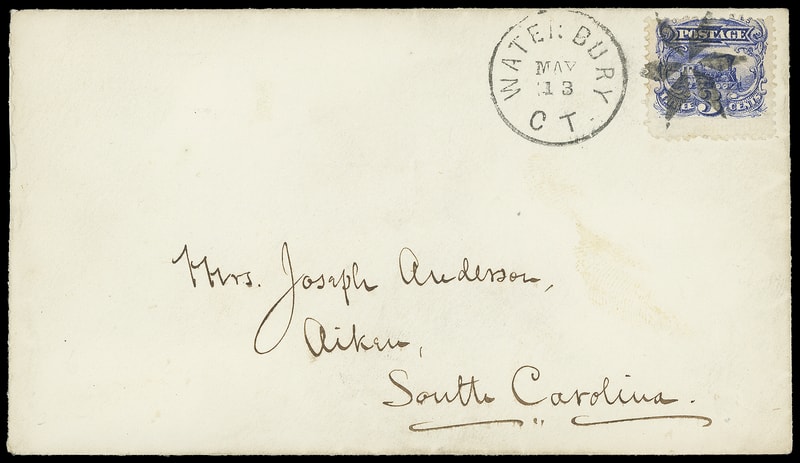 WATERBURY
MAY
13
CT.
POSTAGE
3
CENTS
Mrs. Joseph Anderson,
Aiken,
South Carolina.